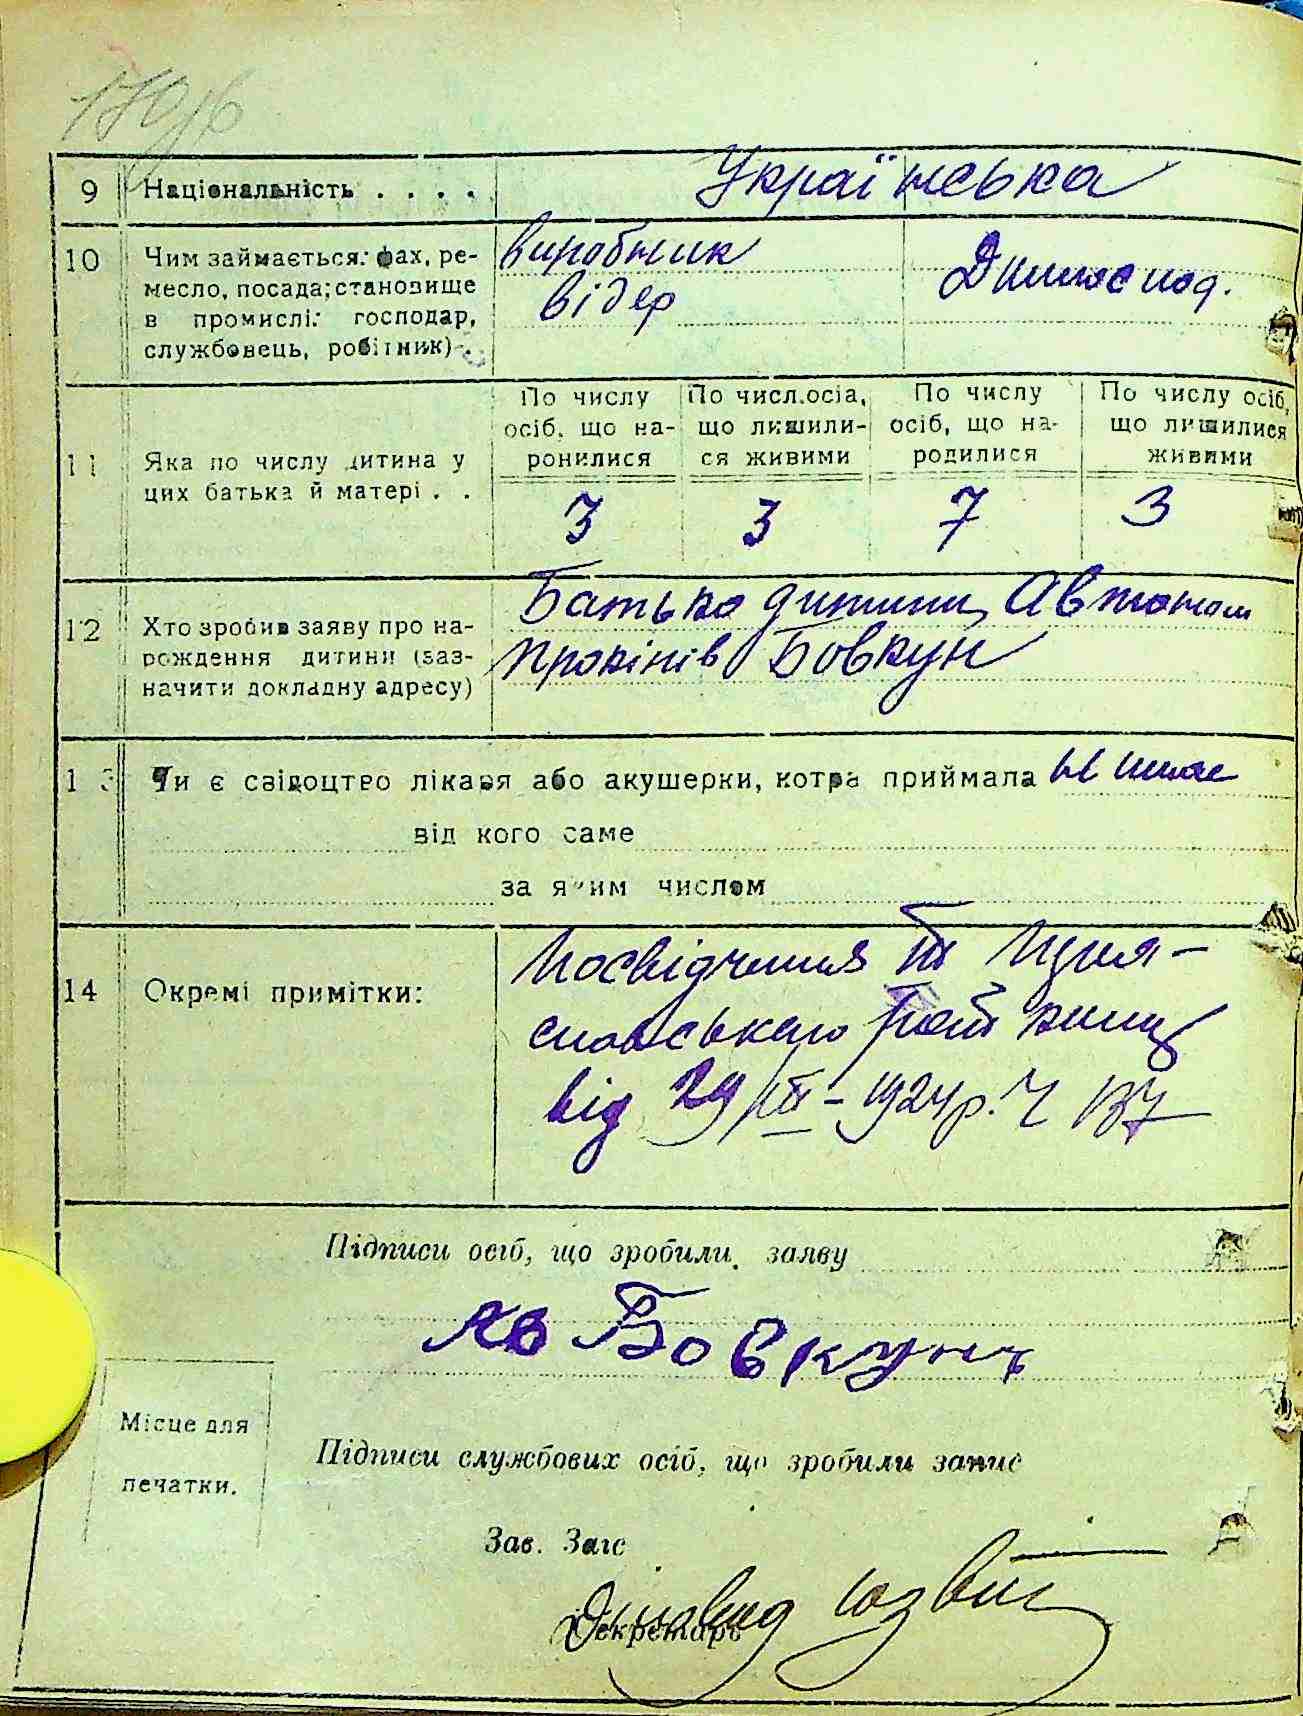 9 Національність . . . . Українська
10 Чим займається: фах, ре-
месло, посада; становище
в промислі: господар,
службовець, робітник) .
виробник
відер
11 Яка по числу дитина у
цих батька й матері . .
По числу
осіб, що на-
ронилися
По числ.осіа,
що лишили-
ся живими
По числу
осіб, що на-
родилися
По числу осіб,
що лишилися
живими
3 3 7 3
12 Хто зробив заяву про на-
рождення дитини (заз-
начити докладну адресу)
Батько дитини Автоном
Бовкун
13 Чи є свідоцтво лікаря або акушерки, котра приймала
від кого саме
за яким числом
14 Окремі примітки:
Посвідчення
від 29/III – 1924 р. Ч 137
Підписи осіб, що зробили заяву
Ав Бовкунъ
Місце для
печатки.
Підписи службових осіб, що зробили запис
Зав. Загс
Секретарь